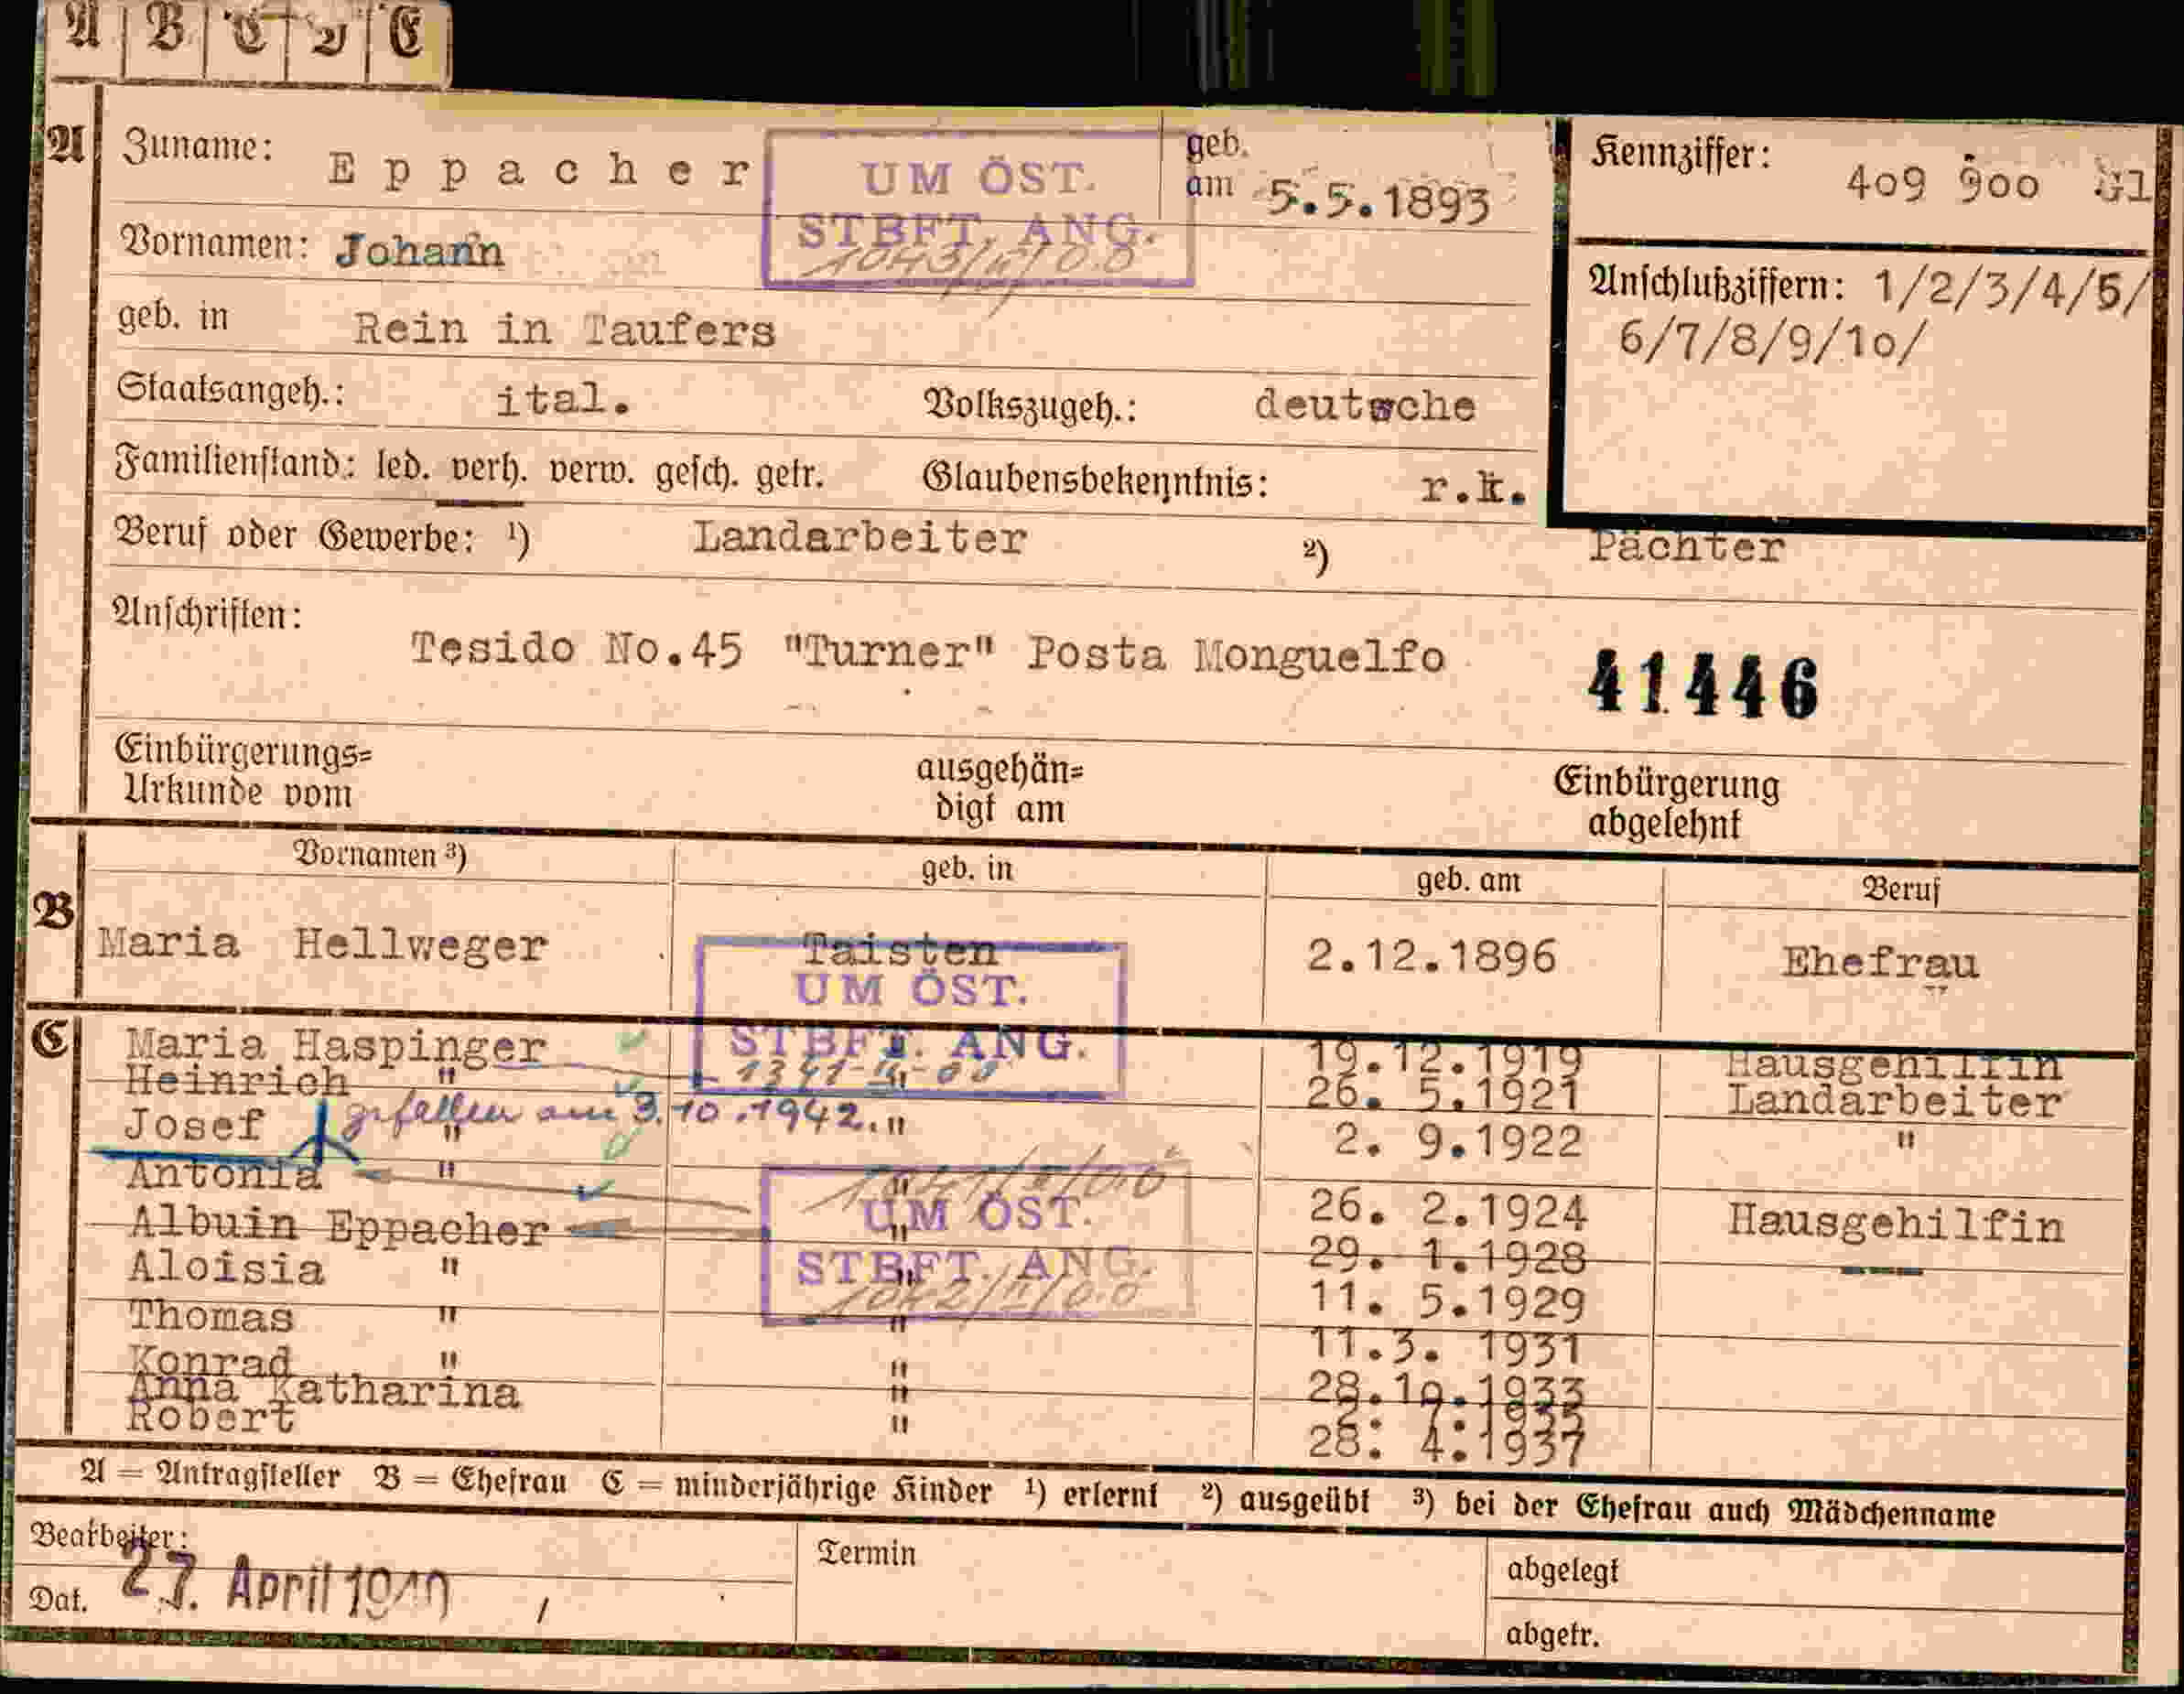 A B C D E
A Zuname: Eppacher geb. am 5.5.1893 Kennziffer: 409 900
UM ÖST.
STBFT. ANG.
Vornamen: Johann
Anschlußziffern: 1/2/3/4/5/
6/7/8/9/10/
geb. in Rein in Taufers
Staatsangeh.: ital. Volkszugeh.: deutsche
Familienstand: led. verh. verw. gesch. getr. Glaubensbekenntnis: r.k.
Beruf oder Gewerbe: ¹) Landarbeiter ²) Pächter
Anschriften:
Tesido No.45 "Turner" Posta Monguelfo 41446
Einbürgerungs=
Urkunde vom
ausgehän=
digt am
Einbürgerung
abgelehnt
Vornamen ³) geb. in geb. am Beruf
B Maria Hellweger Taisten 2.12.1896 Ehefrau
UM ÖST.
STBFT. ANG.
C Maria Haspinger 19.12.1919 Hausgehilfin
Heinrich " " 26. 5.1921 Landarbeiter
Josef " gefallen am 3.10.1942. " 2. 9.1922 "
Antonia " " 26. 2.1924 Hausgehilfin
UM ÖST.
STBFT. ANG.
Albuin Eppacher " 29. 1.1928
Aloisia " " 11. 5.1929
Thomas " " 11.3. 1931
Konrad " " 28.10.1933
Anna Katharina "
Robert " 28. 4.1937
A = Antragsteller B = Ehefrau C = minderjährige Kinder ¹) erlernt ²) ausgeübt ³) bei der Ehefrau auch Mädchenname
Bearbeiter:
Dat. 27. April 1940
Termin
abgelegt
abgetr.